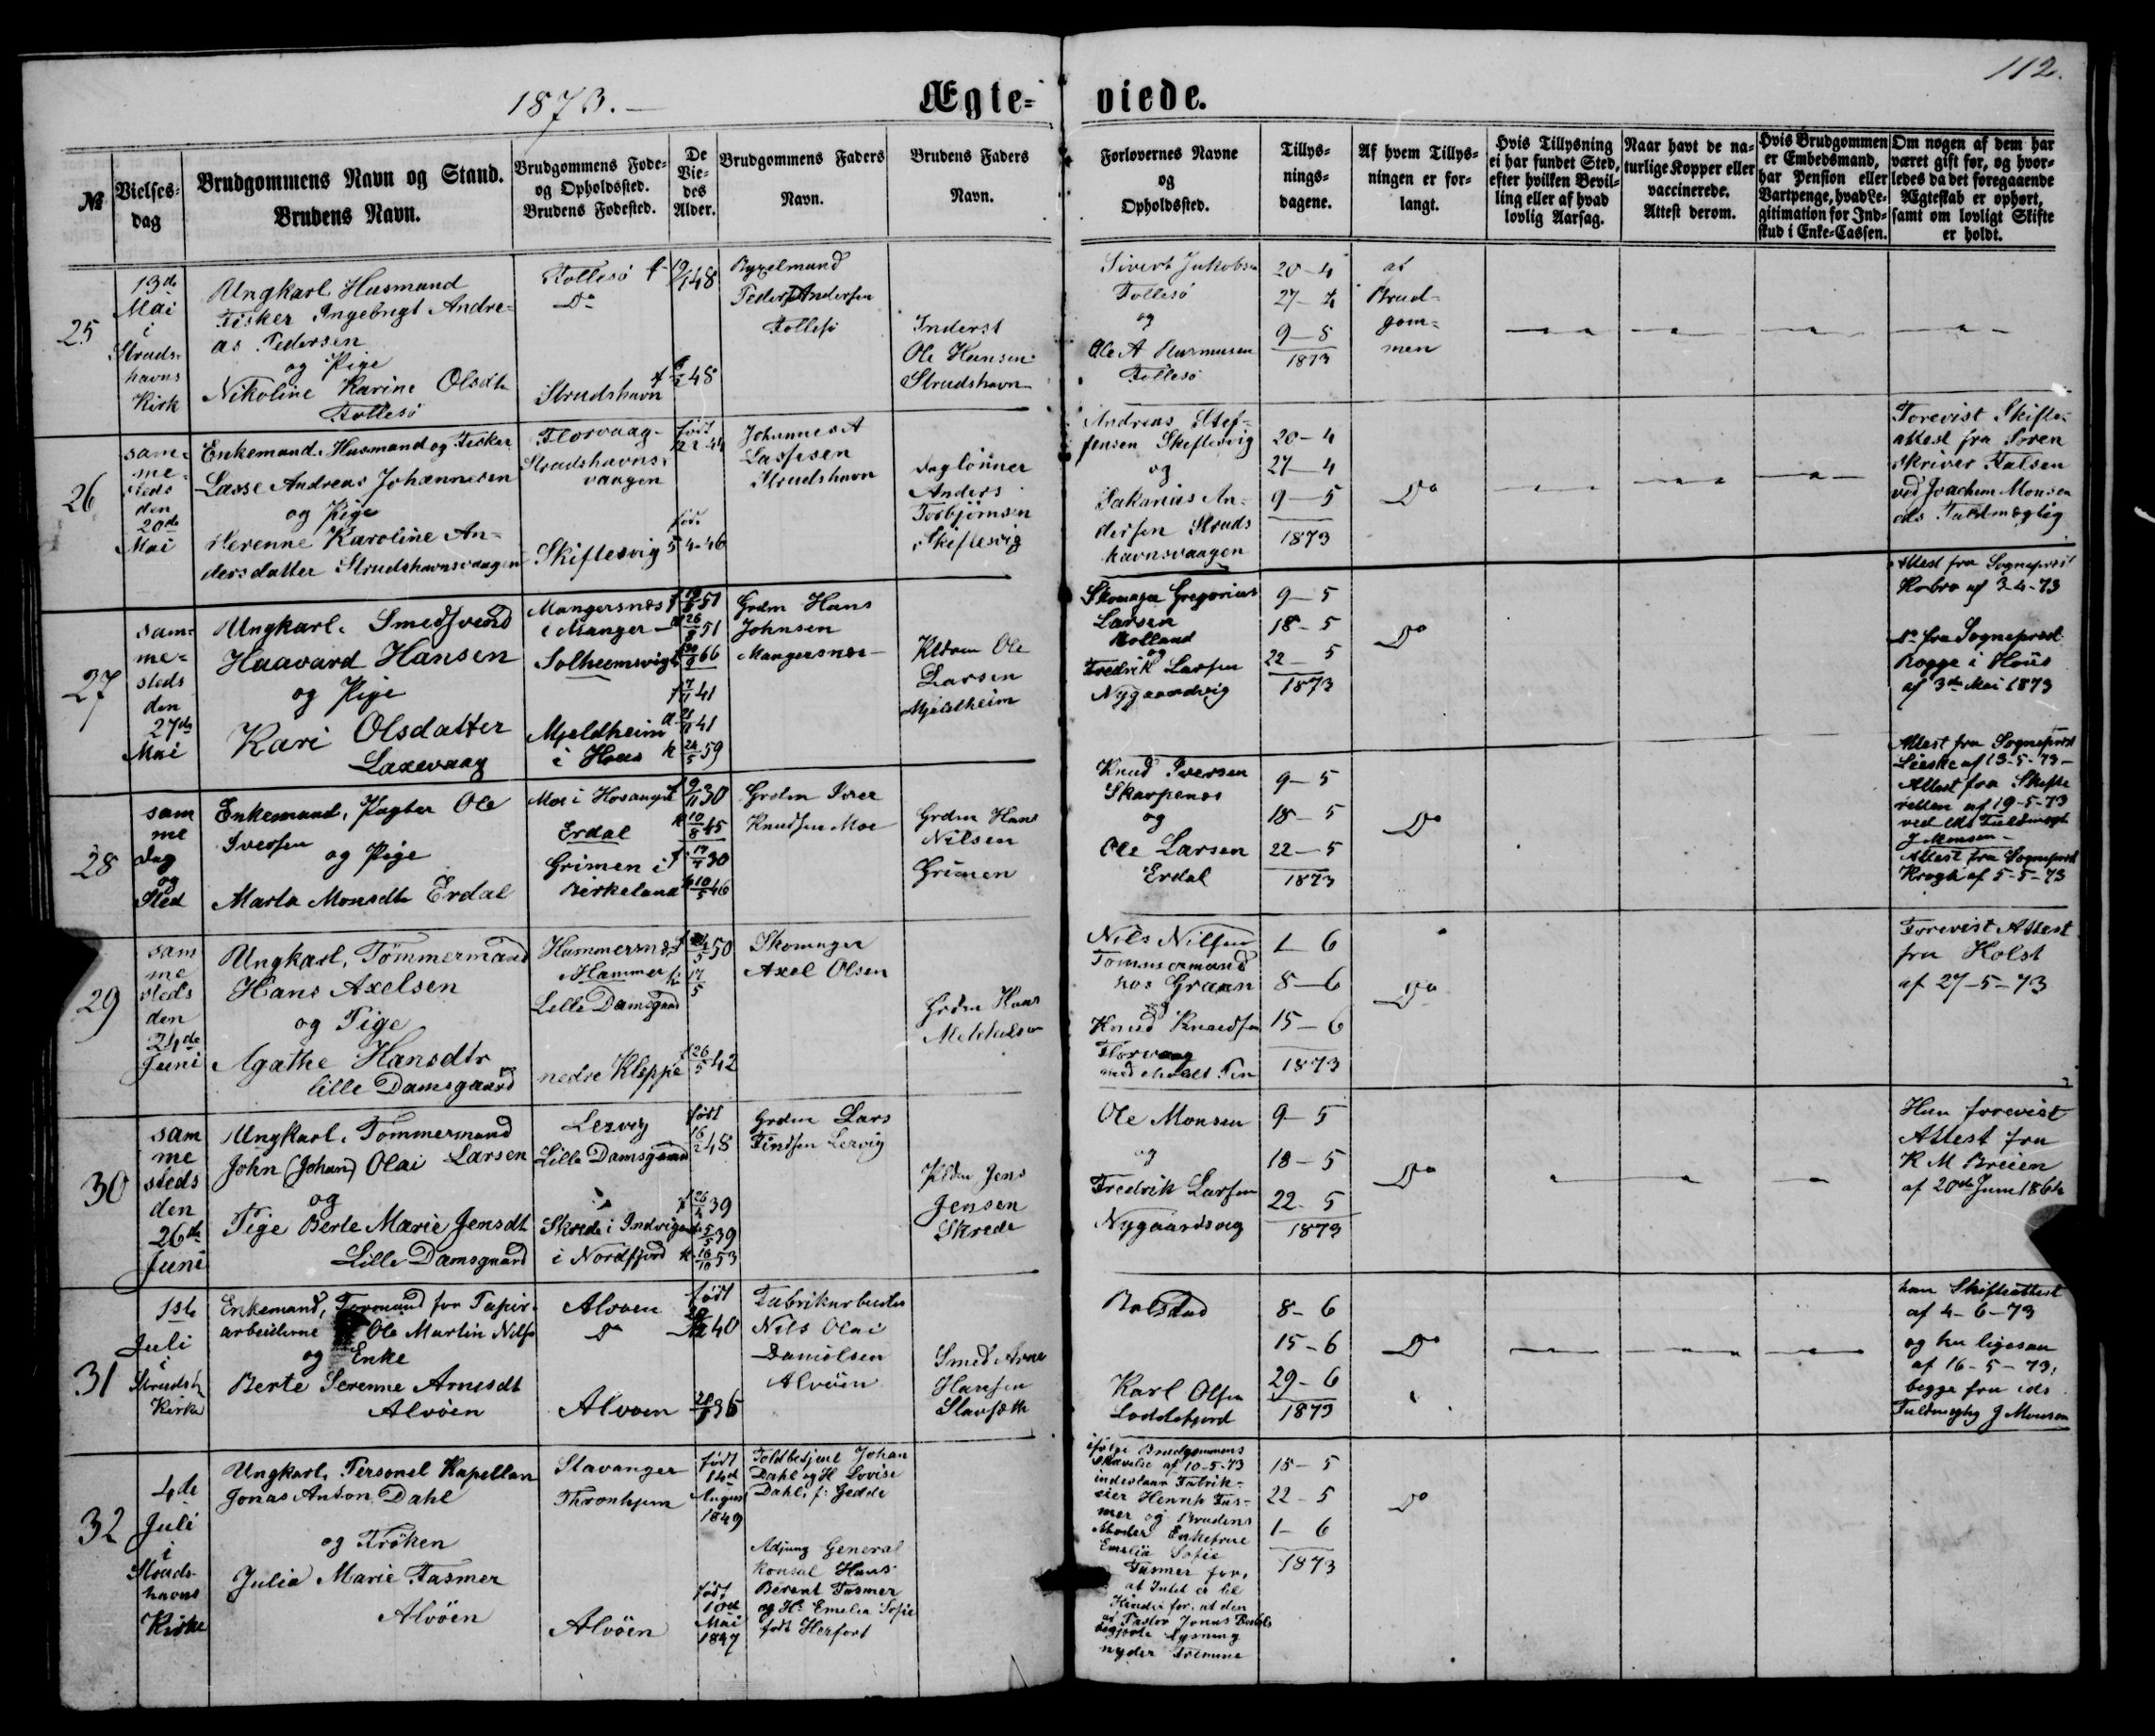 1873.—
Ægte=
viede.
112.
№
Vielses=
dag
Brudgommens Navn og Stand.
Brudens Navn.
Brudgommens Føde=
og Opholdssted.
Brudens Fødested.
De
Vie=
des
Alder.
Brudgommens Faders
Navn.
Brudens Faders
Navn.
Forlovernes Navne
og
Opholdssted.
Tillys=
nings=
dagene.
Af hvem Tillys=
ningen er for=
langt.
Hvis Tillysning
ei har fundet Sted,
efter hvilken Bevil=
ling eller af hvad
lovlig Aarsag.
Naar havt de na=
turlige Kopper eller
vaccinerede.
Attest derom.
Hvis Brudgommen
er Embedsmand,
har Pension eller
Vartpenge, hvad Le=
gitimation for Ind=
skud i Enke=Cassen.
Om nogen af dem har
været gift før, og hvor=
ledes da det foregaaende
Ægteskab er ophørt,
samt om lovligt Skifte
er holdt.
25
13de
Mai
i
Struds-
havns
Kirk
Ungkarl Husmand
Fisker Ingebrigt Andre-
as Pedersen
og Pige
Nikoline Karine Olsdtr
Follesö
Follesö
Do
Strudshavn
48
48
Peder Andersen
Follesö
Inderst
Ole Hansen
Strudshavn
Sivert Jakobsen
Follesö
og
Ole A Rasmusen
Follesö
20-4
27-4
9-5
1873
af
Brud-
gom-
men
26
sam-
me-
steds
den
20de
Mai
Enkemand. Husmand og Fisker
Lasse Andreas Johannesen
og Pige
Serenne Karoline An-
dersdatter Strudshavnsvaagen
Florvaag-
Strudshavns-
vaagen
Skiftesvig
født
født
5 4-46
Johannes A
Lassesen
Strudshavn
Daglönner
Anders
Torbjörnsen
Skiftesvig
Andreas Stef-
fensen Skiftesvig
og
Sakarias An-
dersen Struds
havnsvaagen
20-4
27-4
9-5
1873
Do
Forevist Skifte-
attest fra Soren
skriver Falsen
ved Joachim Monsen
eds Fuldmægtig
27
sam-
me-
steds
den
27de
Mai
Ungkarl. Smedsvend
Haavard Hansen
og Pige
Kari Olsdatter
Laxevaag
Mangersnes
i Manger
Solheimsvig
Mjeldheim
i Hous
51
51
66
41
41
59
Grdm Hans
Johnsen
Mangersnes
Ole
Larsen
Mjeldheim
Skomager Gregorius
Larsen
Holland
og
Fredrik Larsen
Nygaardsvig
9-5
18-5
22-5
1873
Do
Attest fra Sogneprest
af 3-4-73
Do fra Sogneprest
Rogge i Hous
af 3de Mai 1873
28
sam
me
Dag
og
Sted
Enkemand, Pagter Ole
Iversen
og Pige
Marta Monsdtr Erdal
Moe i Hosanger
Erdal
Grimen i
Birkeland
30
45
30
46
Grdm Iver
Knudsen Moe
Grdm Hans
Nilsen
Grimen
Knud Iversen
Skarpenes
og
Ole Larsen
Erdal
9-5
18-5
22-5
1873
Do
Attest fra Sogneprest
af 13-5-73-
Attest fra Skifte
retten af 19-5-73
ved eds Fuldmægt
J Monsen
Attest fra Sogneprest
Krogh af 5-5-73
29
sam
me
steds
den
24de
Juni
Ungkarl, Tömmermand
Hans Axelsen
og Pige
Agathe Hansdtr
lille Damsgaard
Hammersnes
Hammer
Lille Damsgaard
nedre Kleppe
50
42
Skomager
Axel Olsen
Grdm Hans
Mikkelsen
Nils Nilsen
Tömmermand
hos Graan
og
Knud Knudsen
Florvaag
1-6
8-6
15-6
1873
Do
Forevist Attest
fra Holst
af 27-5-73
30
sam
me
steds
den
26de
Juni
Ungkarl. Tömmermand
John (Johan) Olai Larsen
og
Pige Berte Marie Jensdt
Lille Damsgaard
Lervig
Lille Damsgaard
Skrede i Indvigen
i Nordfjord
født
48
39
39
53
Grdm Lars
Finsen Lervig
Jens
Jensen
Skrede
Ole Monsen
og
Fredrik Larsen
Nygaardsvig
9-5
18-5
22-5
1873
Do
Hun forevist
Attest fra
K M Breien
af 20de Juni 186
31
1ste
Juli
i
Strudsh
Kirke
Enkemand, Formand for Papir-
arbeiderne Ole Martin Nilsen
og Enke
Berte Serenne Arnesdt
Alvöen
Alvoen
Do
Alvoen
født
40
36
Fabrikarbeider
Nils Olai
Danielsen
Alvöen
Smed Arne
Hansen
Bolstad
Karl Olsen
Loddefjord
8-6
15-6
29-6
1873
Do
han Skifteattest
af 4-6-73
og hun ligesaa
af 16-5-73,
begge fra eds
Fuldmægtig J Monsen
32
4de
Juli
i
Struds-
havns
Kirke
Ungkarl, Personel Kapellan
Jonas Anton Dahl
og Fröken
Julia Marie Fasmer
Alvöen
Stavanger
Thronhjem
Alvöen
født
14de
August
1849
født
10de
Mai
1847
Toldbetjent Johan
Dahl og H Lovise
Dahl, f. Gedde
Adjung General
Konsul Hans
Berent Fasmer
og H. Emelia Sofie
født Herfort
ifölge Brudgommens
Skrivelse af 10-5-73
indestaar Fabrik-
eier Henrik Fas-
mer og Brudens
Moder Enkefrue
Emelia Sofie
Fasmer for,
at Intet er til
Hinder for, at den
af Pastor Jonas Dahl
begjærte Lysning
nyder Fremme
15-5
22-5
1-6
1873
Do